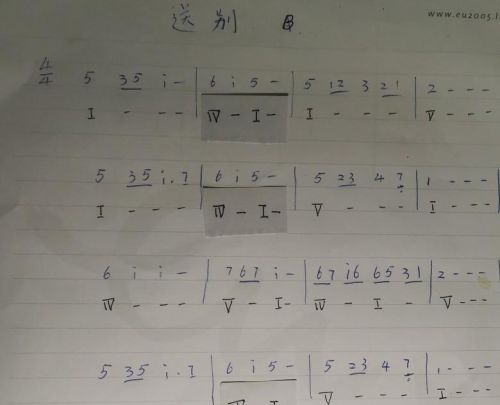 送别 B
www.eu2005.l
4/4 5 35 i - | 6 i 5 - | 5 12 3 21 | 2 - - -
I - - - IV - I - I - - - V - - -
5 35 i . 7 | 6 i 5 - | 5 23 4 7 | 1 - - -
I - - - IV - I - V - - - I - - -
6 i i - | 7 67 i - | 67 i6 65 31 | 2 - - -
IV - - - V - I - IV - I - V - - -
5 35 i . 7 | 6 i 5 - | 5 23 4 7 | 1 - - -
IV - I - V - - - I - - -